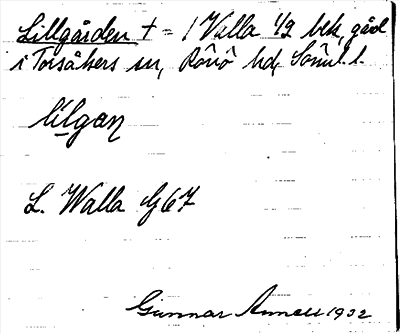 Lillgården † = 1 Valla 1/9 bek, gård
i Torsåkers sn, Rönö hd, Söml. l.
lilgan
L. Walla G 67
Gunnar Annell 1932